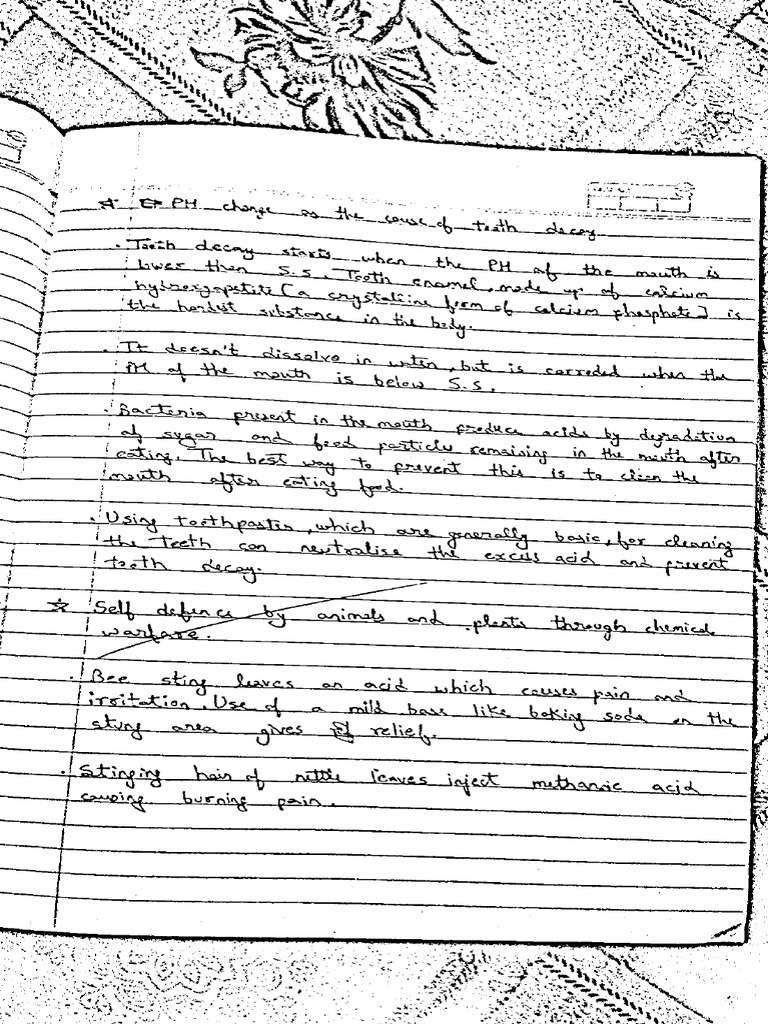 ☆ PH change as the cause of tooth decay
. Tooth decay starts when the PH of the mouth is
lower than 5.5. Tooth enamel, made up of calcium
hydroxyapatite [a crystalline form of calcium phosphate] is
the hardest substance in the body.
. It doesn't dissolve in water, but is corroded when the
PH of the mouth is below 5.5.
. Bacteria present in the mouth produce acids by degradation
of sugar and food particle remaining in the mouth after
eating. The best way to prevent this is to clean the
mouth after eating food.
. Using toothpastes, which are generally basic, for cleaning
the teeth can neutralise the excess acid and prevent
tooth decay.
☆ Self defence by animals and plants through chemical
warfare.
. Bee sting leaves an acid which causes pain and
irritation. Use of a mild base like baking soda on the
stung area gives relief.
. Stinging hair of nettle leaves inject methanoic acid
causing burning pain.